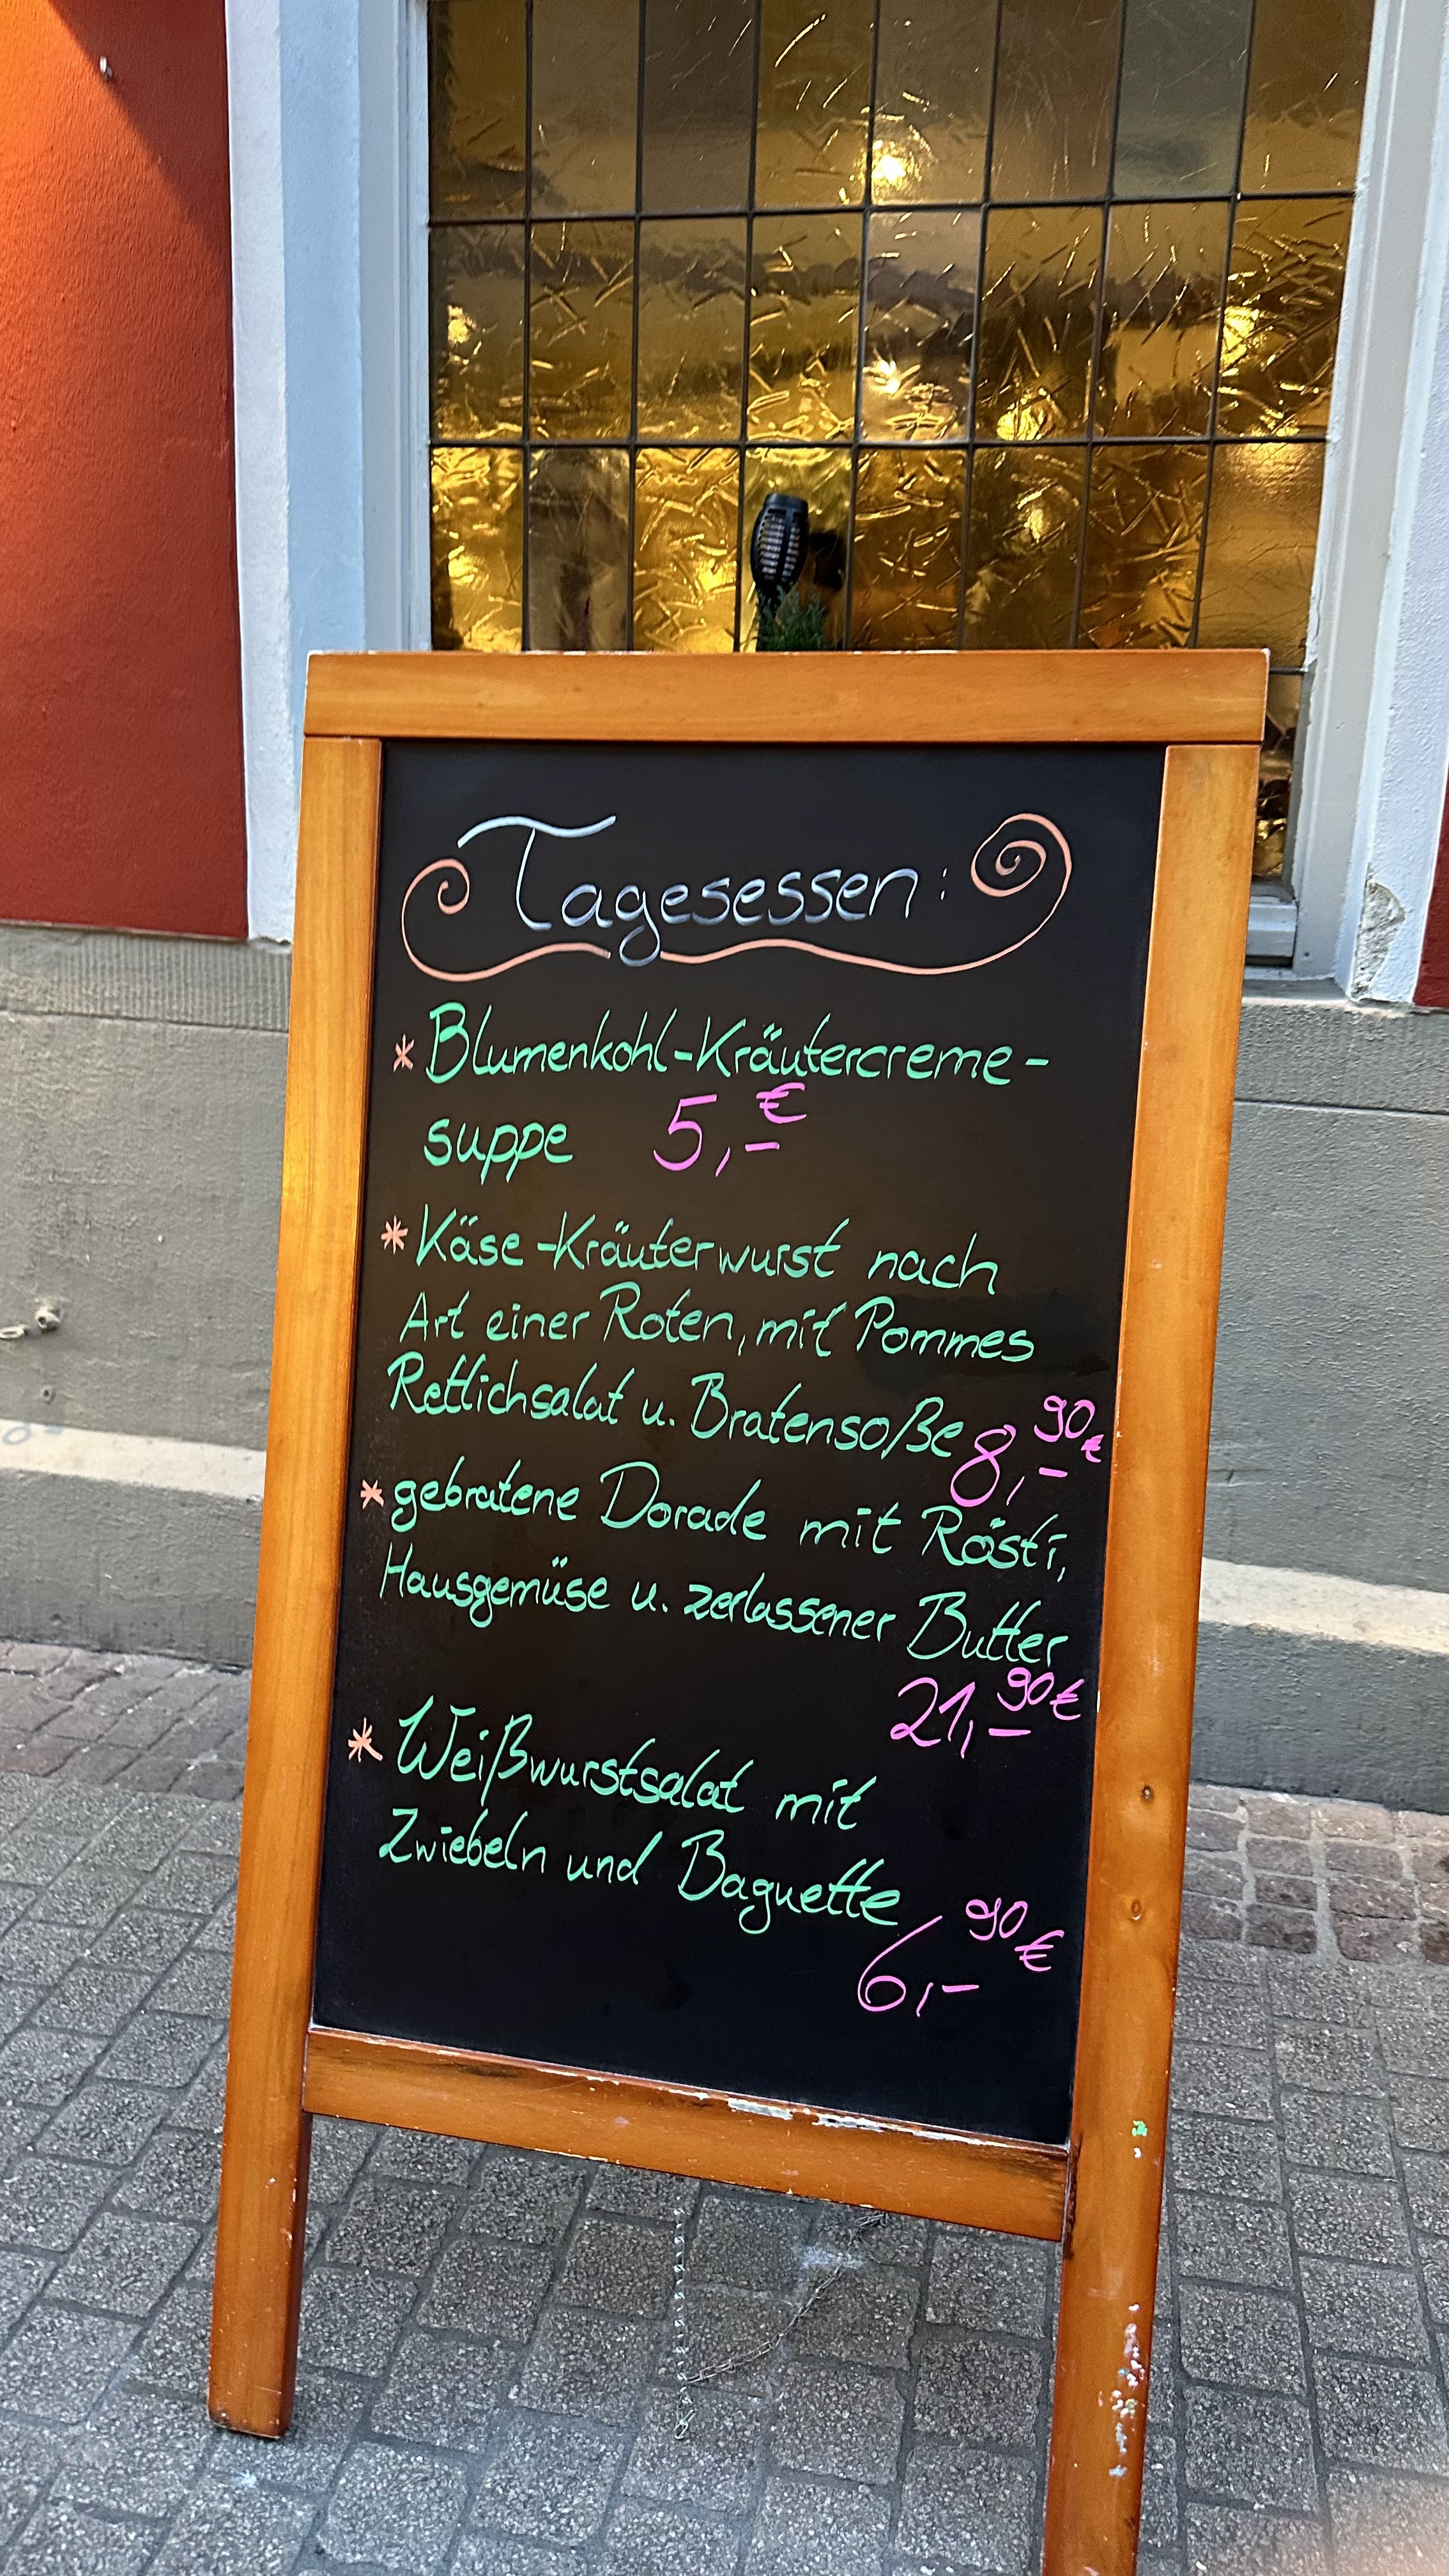 Tagesessen:
* Blumenkohl-Kräutercreme-
suppe 5,-€
* Käse-Kräuterwurst nach
Art einer Roten, mit Pommes
Rettichsalat u. Bratensoße 8,90€
* gebratene Dorade mit Rösti,
Hausgemüse u. zerlassener Butter
21,90€
* Weißwurstsalat mit
Zwiebeln und Baguette
6,90€